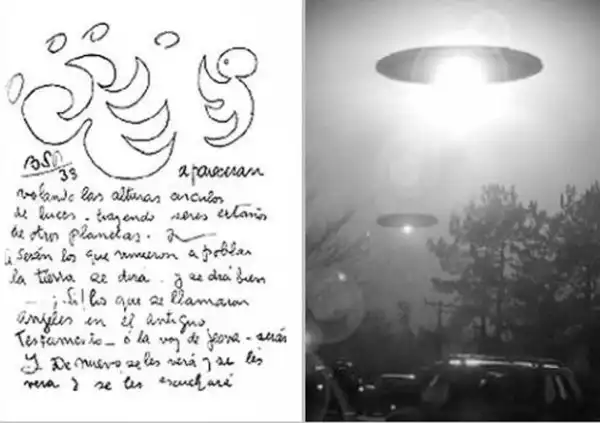 BSP
38
apareceran
volando las alturas circulos
de luces. trayendo seres extraños
de otros planetas.
Serán los que vinieron a poblar
la tierra se dirá. y se dirá bien
¡Si! los que se llamaron
angeles en el antiguo
Testamento - ó la voz de Jeova - serán
De nuevo se les verá y se les
vera y se les escuchará